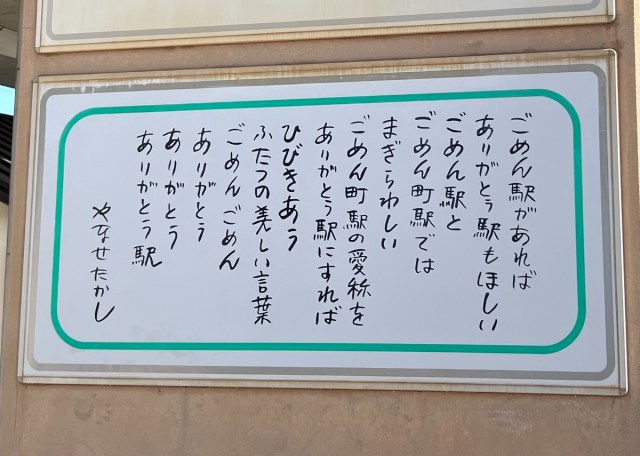 ごめん駅があれば
ありがとう駅もほしい
ごめん駅と
ごめん町駅では
まぎらわしい
ごめん町駅の愛称を
ありがとう駅にすれば
ひびきあう
ふたつの美しい言葉
ごめん ごめん
ありがとう
ありがとう
ありがとう駅
やなせたかし